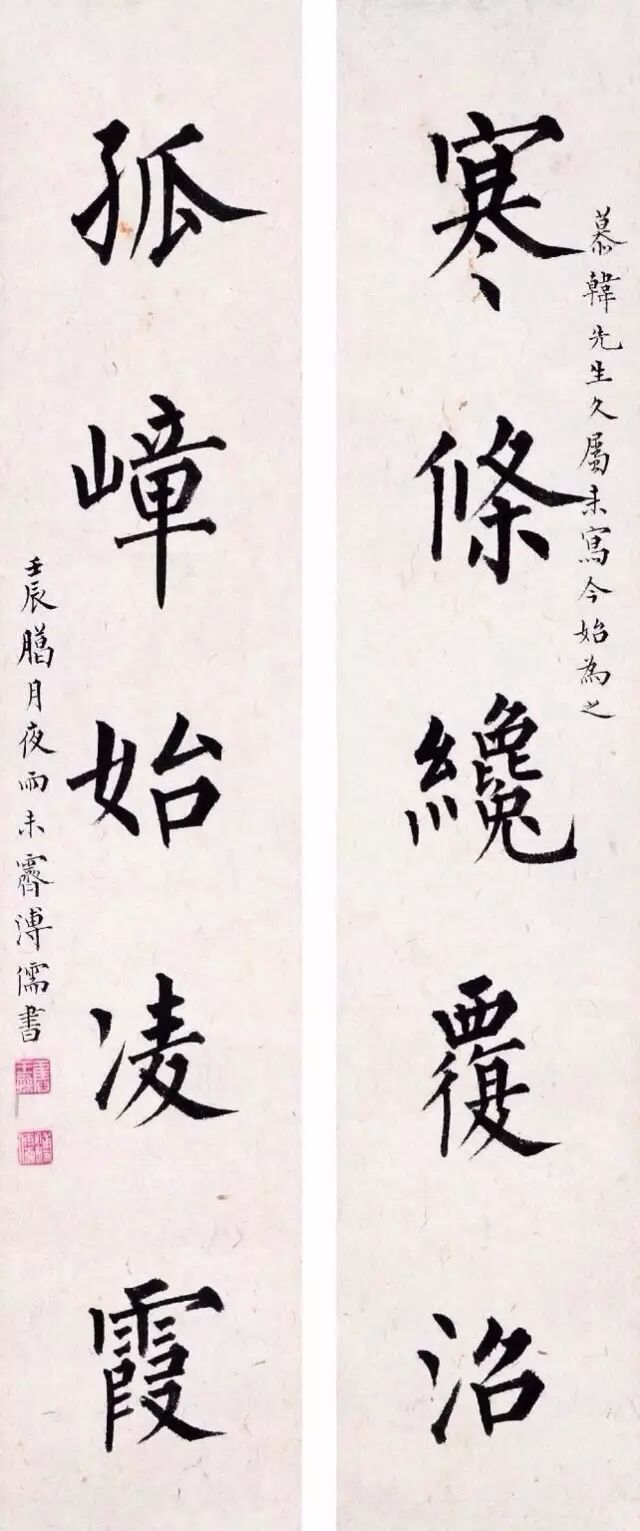 慕韓先生久屬未寫今始為之
寒條纔覆沼
孤嶂始凌霞
壬辰臈月夜雨未霽溥儒書
舊王孫
溥儒